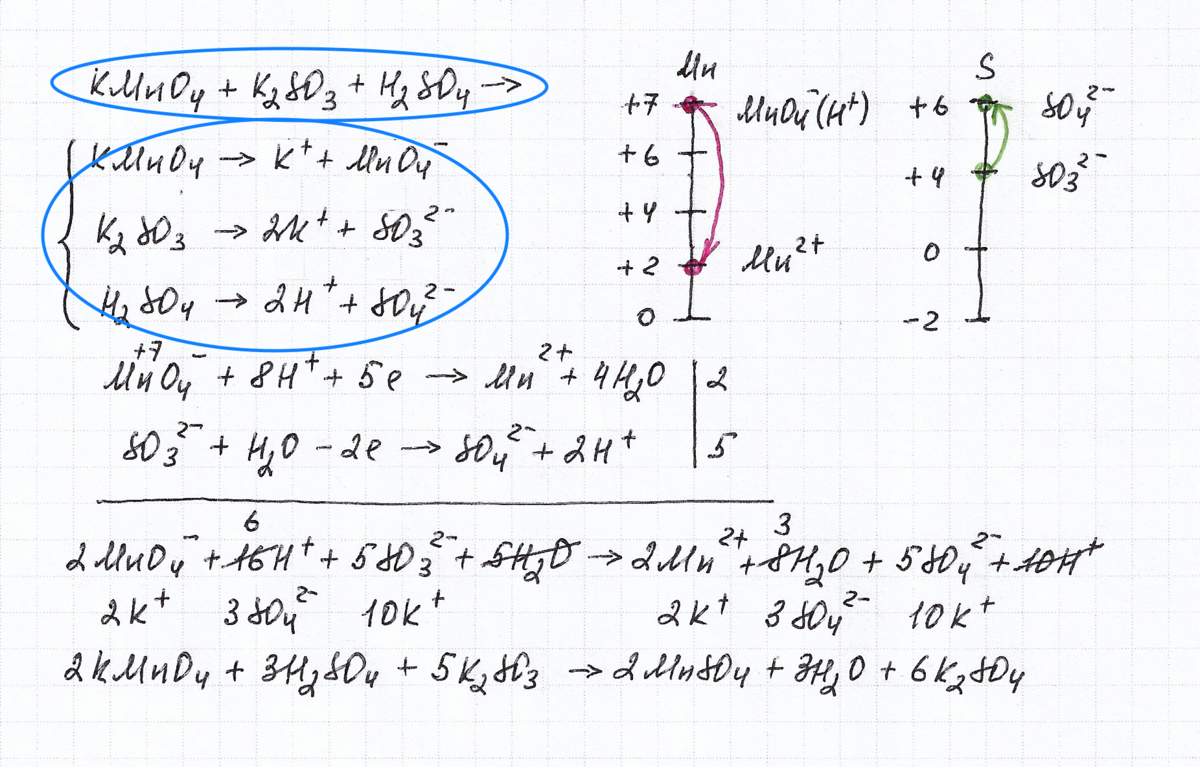 KMnO₄ + K₂SO₃ + H₂SO₄ →
KMnO₄ → K⁺ + MnO₄⁻
K₂SO₃ → 2K⁺ + SO₃²⁻
H₂SO₄ → 2H⁺ + SO₄²⁻
Mn
+7 MnO₄⁻(H⁺)
+6
+4
+2 Mn²⁺
0
S
+6 SO₄²⁻
+4 SO₃²⁻
0
-2
+7
MnO₄⁻ + 8H⁺ + 5e → Mn²⁺ + 4H₂O | 2
SO₃²⁻ + H₂O - 2e → SO₄²⁻ + 2H⁺ | 5
6 3
2MnO₄⁻ + 16H⁺ + 5SO₃²⁻ + 5H₂O → 2Mn²⁺ + 8H₂O + 5SO₄²⁻ + 10H⁺
2K⁺ 3SO₄²⁻ 10K⁺ 2K⁺ 3SO₄²⁻ 10K⁺
2KMnO₄ + 3H₂SO₄ + 5K₂SO₃ → 2MnSO₄ + 3H₂O + 6K₂SO₄